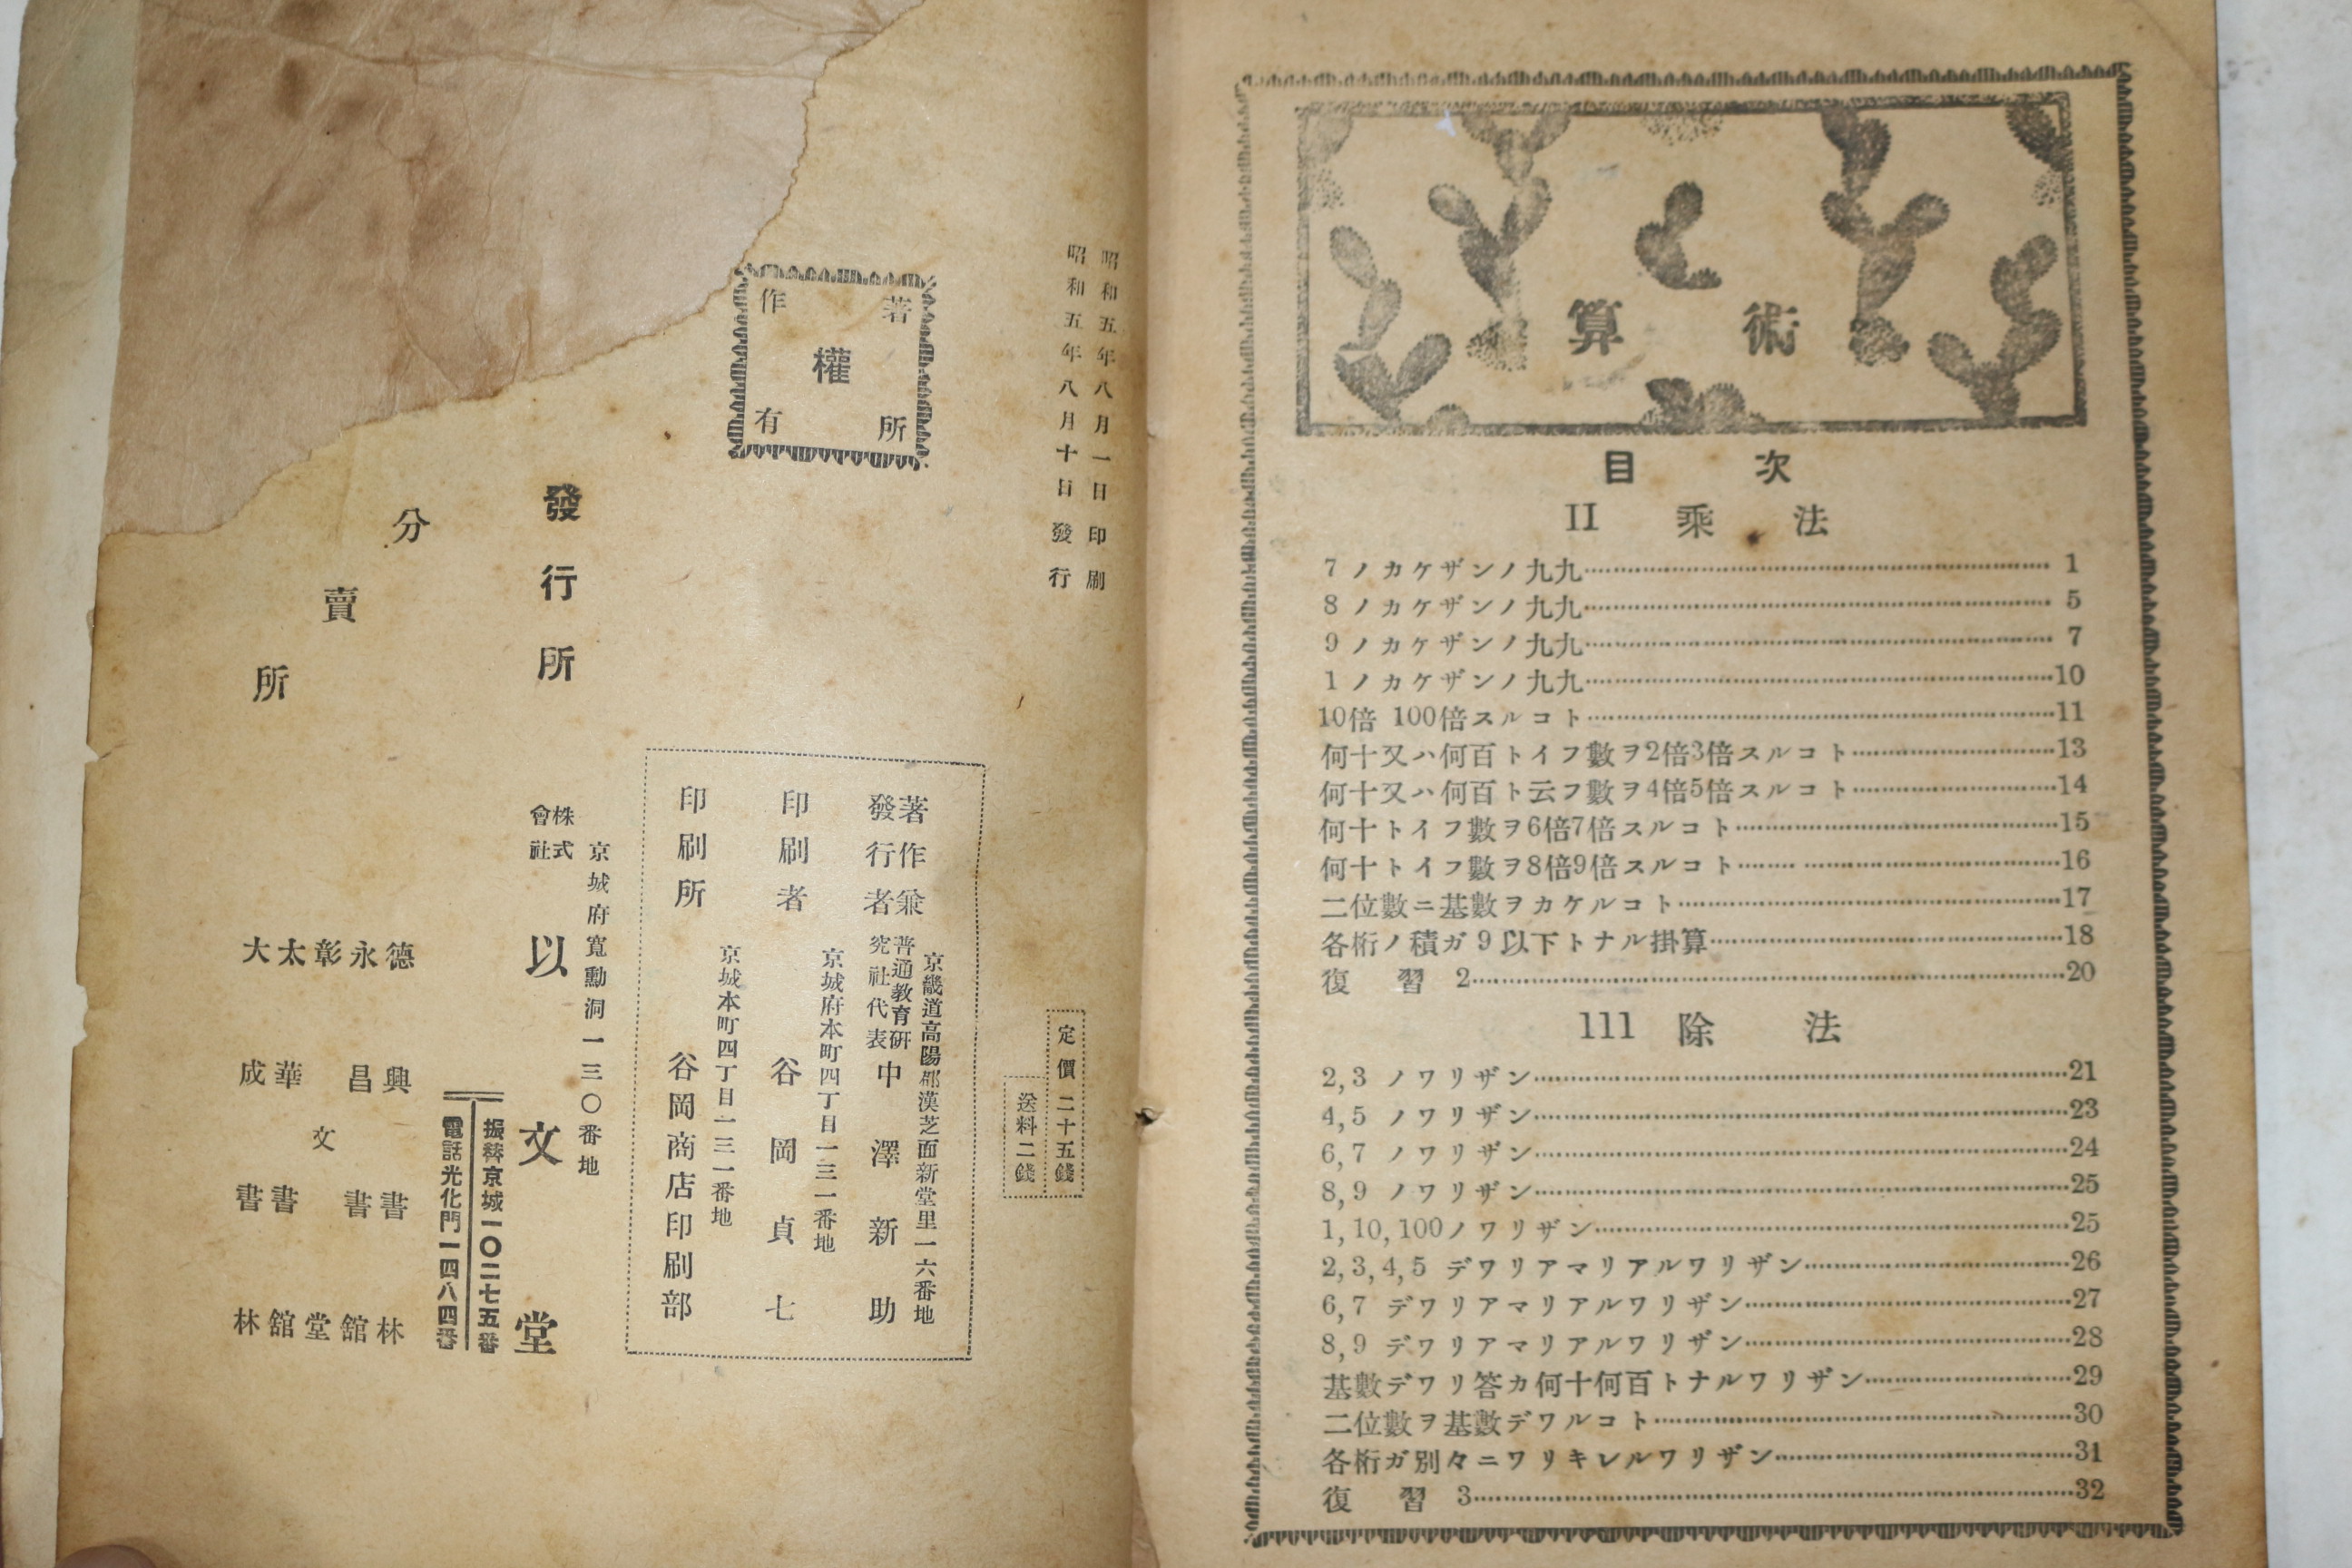 昭和五年八月一日印刷
昭和五年八月十日發行
定價二十五錢
送料二錢
著作
權
所有
著作兼
發行者
京畿道高陽郡漢芝面新堂里一六番地
普通教育研
究社代表
中澤新助
印刷者
京城府本町四丁目一三一番地
谷岡貞七
印刷所
京城本町四丁目一三一番地
谷岡商店印刷部
發行所
京城府寬勳洞一三〇番地
株式
會社
以文堂
振替京城一〇二七五番
電話光化門一四八四番
分賣所
德興書林
永昌書舘
彰文堂
太華書舘
大成書林
算術
目次
II 乘法
7ノカケザンノ九九……1
8ノカケザンノ九九……5
9ノカケザンノ九九……7
1ノカケザンノ九九……10
10倍 100倍スルコト……11
何十又ハ何百トイフ數ヲ2倍3倍スルコト……13
何十又ハ何百ト云フ數ヲ4倍5倍スルコト……14
何十トイフ數ヲ6倍7倍スルコト……15
何十トイフ數ヲ8倍9倍スルコト……16
二位數ニ基數ヲカケルコト……17
各桁ノ積ガ9以下トナル掛算……18
復習 2……20
111 除法
2,3 ノワリザン……21
4,5 ノワリザン……23
6,7 ノワリザン……24
8,9 ノワリザン……25
1,10,100ノワリザン……25
2,3,4,5 デワリアマリアルワリザン……26
6,7 デワリアマリアルワリザン……27
8,9 デワリアマリアルワリザン……28
基數デワリ答カ何十何百トナルワリザン……29
二位數ヲ基數デワルコト……30
各桁ガ別々ニワリキレルワリザン……31
復習 3……32